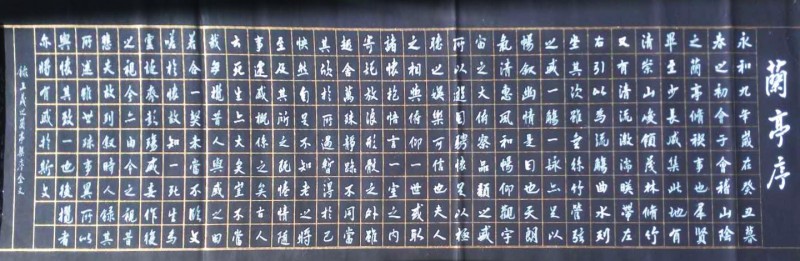 蘭亭序
永和九年歲在癸丑暮
春之初會于會稽山陰
之蘭亭脩禊事也羣賢
畢至少長咸集此地有
崇山峻領茂林脩竹
又有清流激湍暎帶左
右引以為流觴曲水列
坐其次雖無絲竹管弦
之盛一觴一詠亦足以
暢叙幽情是日也天朗
氣清惠風和暢仰觀宇
宙之大俯察品類之盛
所以遊目騁懷足以極
聽之娛信可樂也夫人
之相與俯仰一世或取
諸懷抱悟言一室之內
寄所託放浪形骸之外雖
趣舍萬殊靜躁不同當
其欣於所遇暫得於己
快然自足不知老之將
至及其所之既惓情隨
事遷感慨係之矣古人
云死生亦大矣豈不
哉每攬昔人興感之
若合一契未嘗不臨文
嗟悼於懷固知一死生為
虛誕齊彭殤為妄作後
之視今亦由今之視昔
悲夫故列叙時人錄其
所述雖世殊事異所以
興懷其致一也後攬者
亦將有感於斯文
錄王羲之蘭亭集序全文